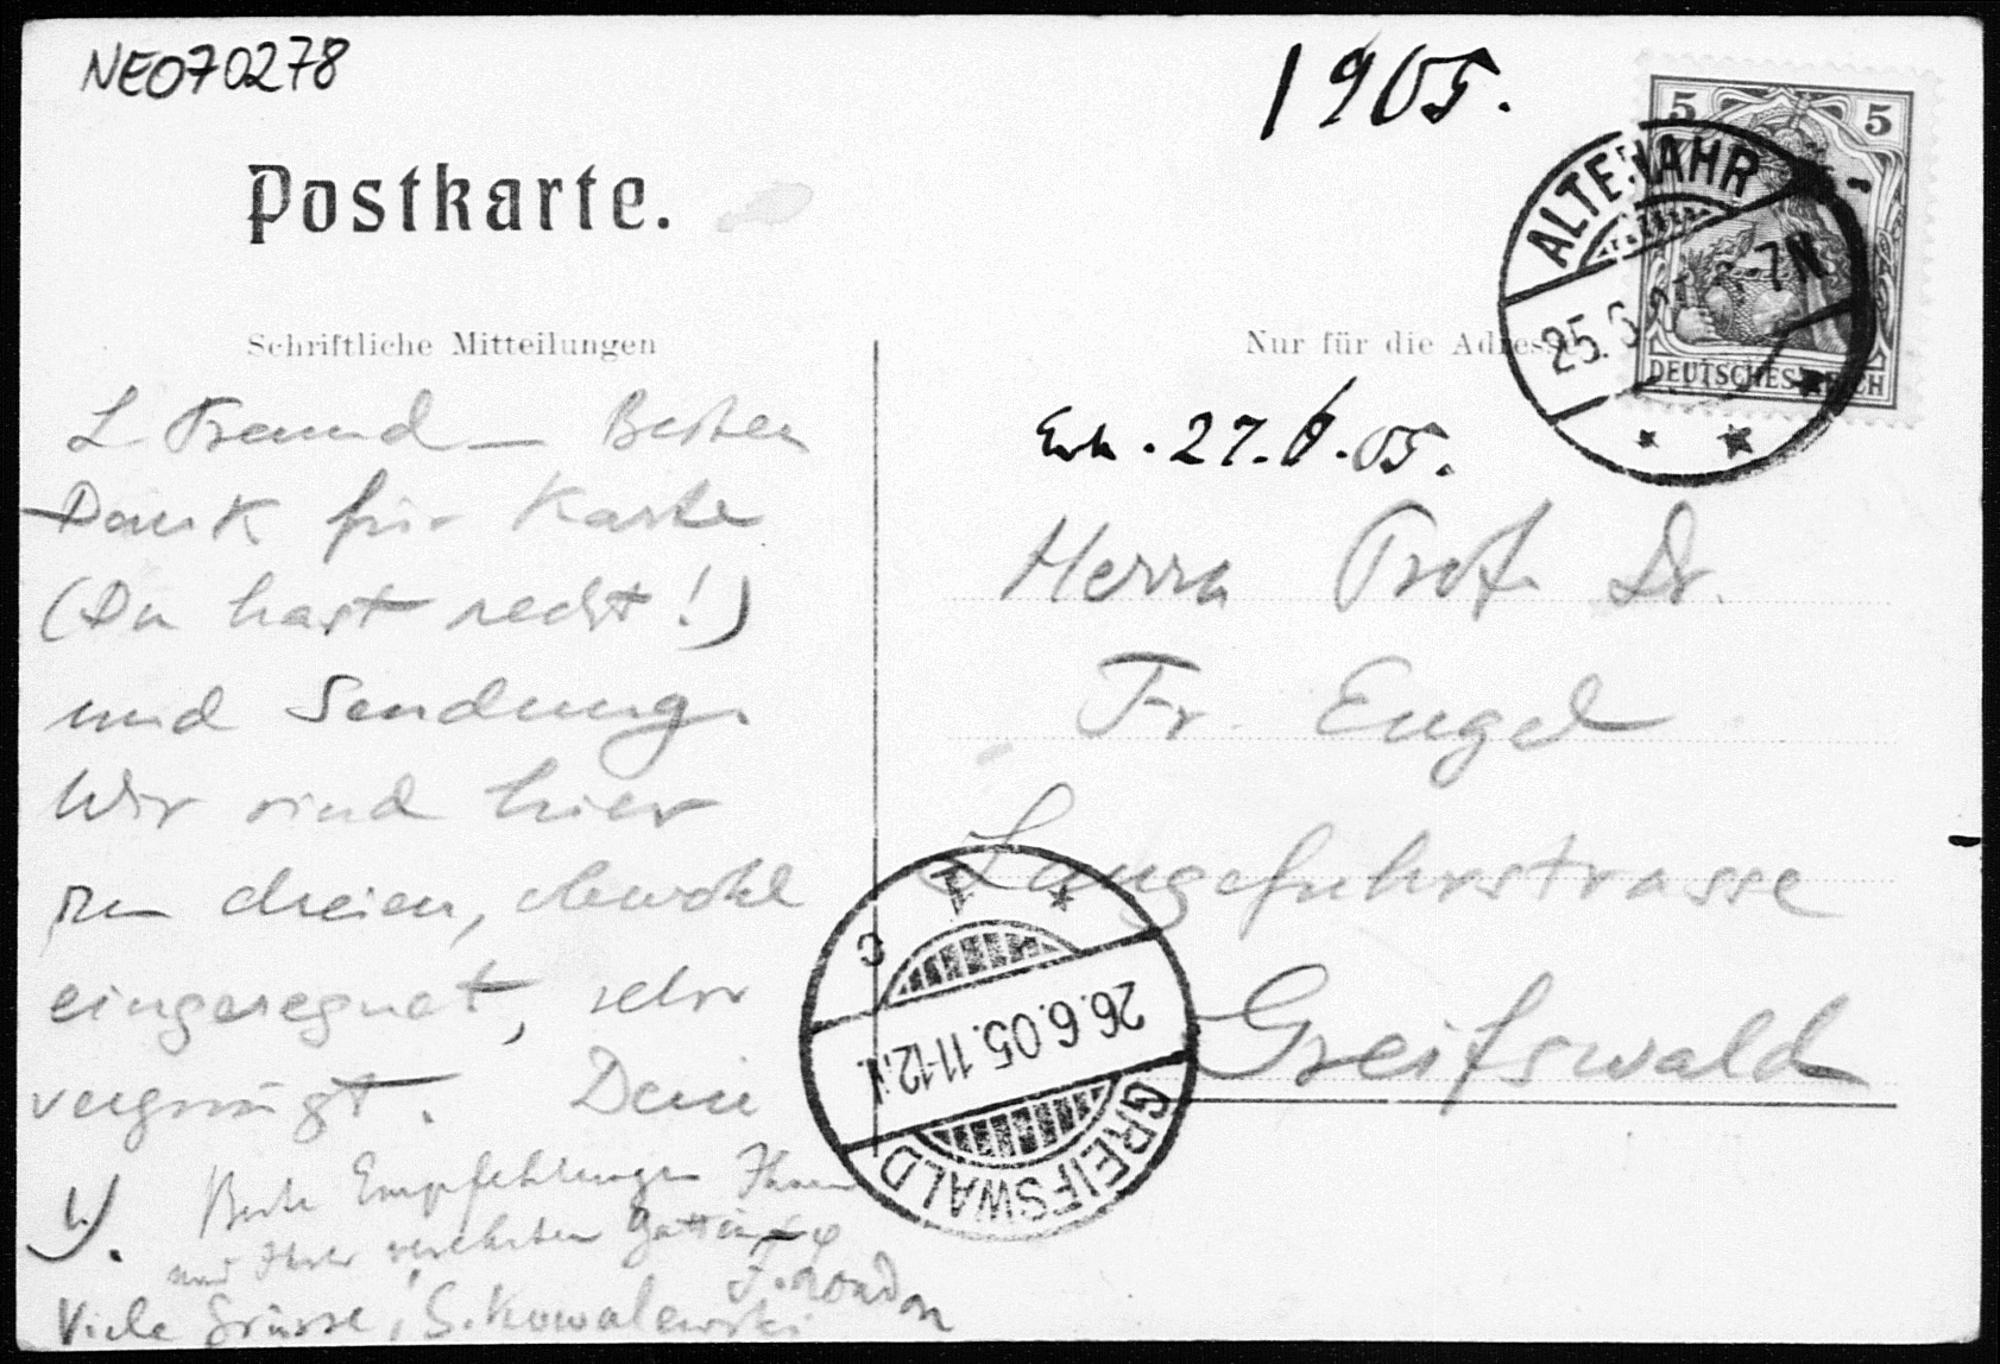 NEO70278
1905.
Postkarte.
5 5
DEUTSCHES REICH
ALTENAHR
25.6 7N
Schriftliche Mitteilungen
Nur für die Adresse
Erh. 27.6.05.
L Freund – Besten
Dank für Karte
(Du hast recht!)
und Sendung.
Wir sind hier
zu dreien, obwohl
eingeregnet, sehr
vergnügt. Dein
Beste Empfehlungen Ihnen
und Ihrer verehrten Gattin
F. London
Viele Grüsse, S. Kowalewski
Herrn Prof. Dr.
Fr. Engel
Langefuhrstrasse
Greifswald
GREIFSWALD
26.6.05.11-12.V.
1 c